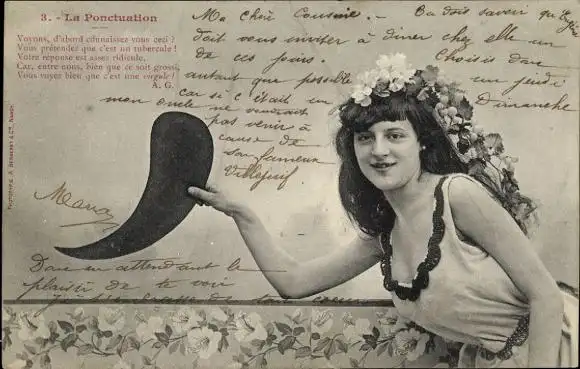 3. - La Ponctuation
Voyons, d'abord connaissez vous ceci ?
Vous prétendez que c'est un tubercule !
Votre réponse est assez ridicule.
Car, entre nous, bien que ce soit grossi,
Vous voyez bien que c'est une virgule !
A. G.
Ma chère Cousine. - Tu dois savoir qu'
doit vous inviter à diner chez elle un
de ces jours. Choisis donc
autant que possible un jeudi
car si c'était un Dimanche
mon oncle ne voudrait
pas venir à
cause de
son fameux
Villejuif
Donc en attendant le
plaisir de te voir
je